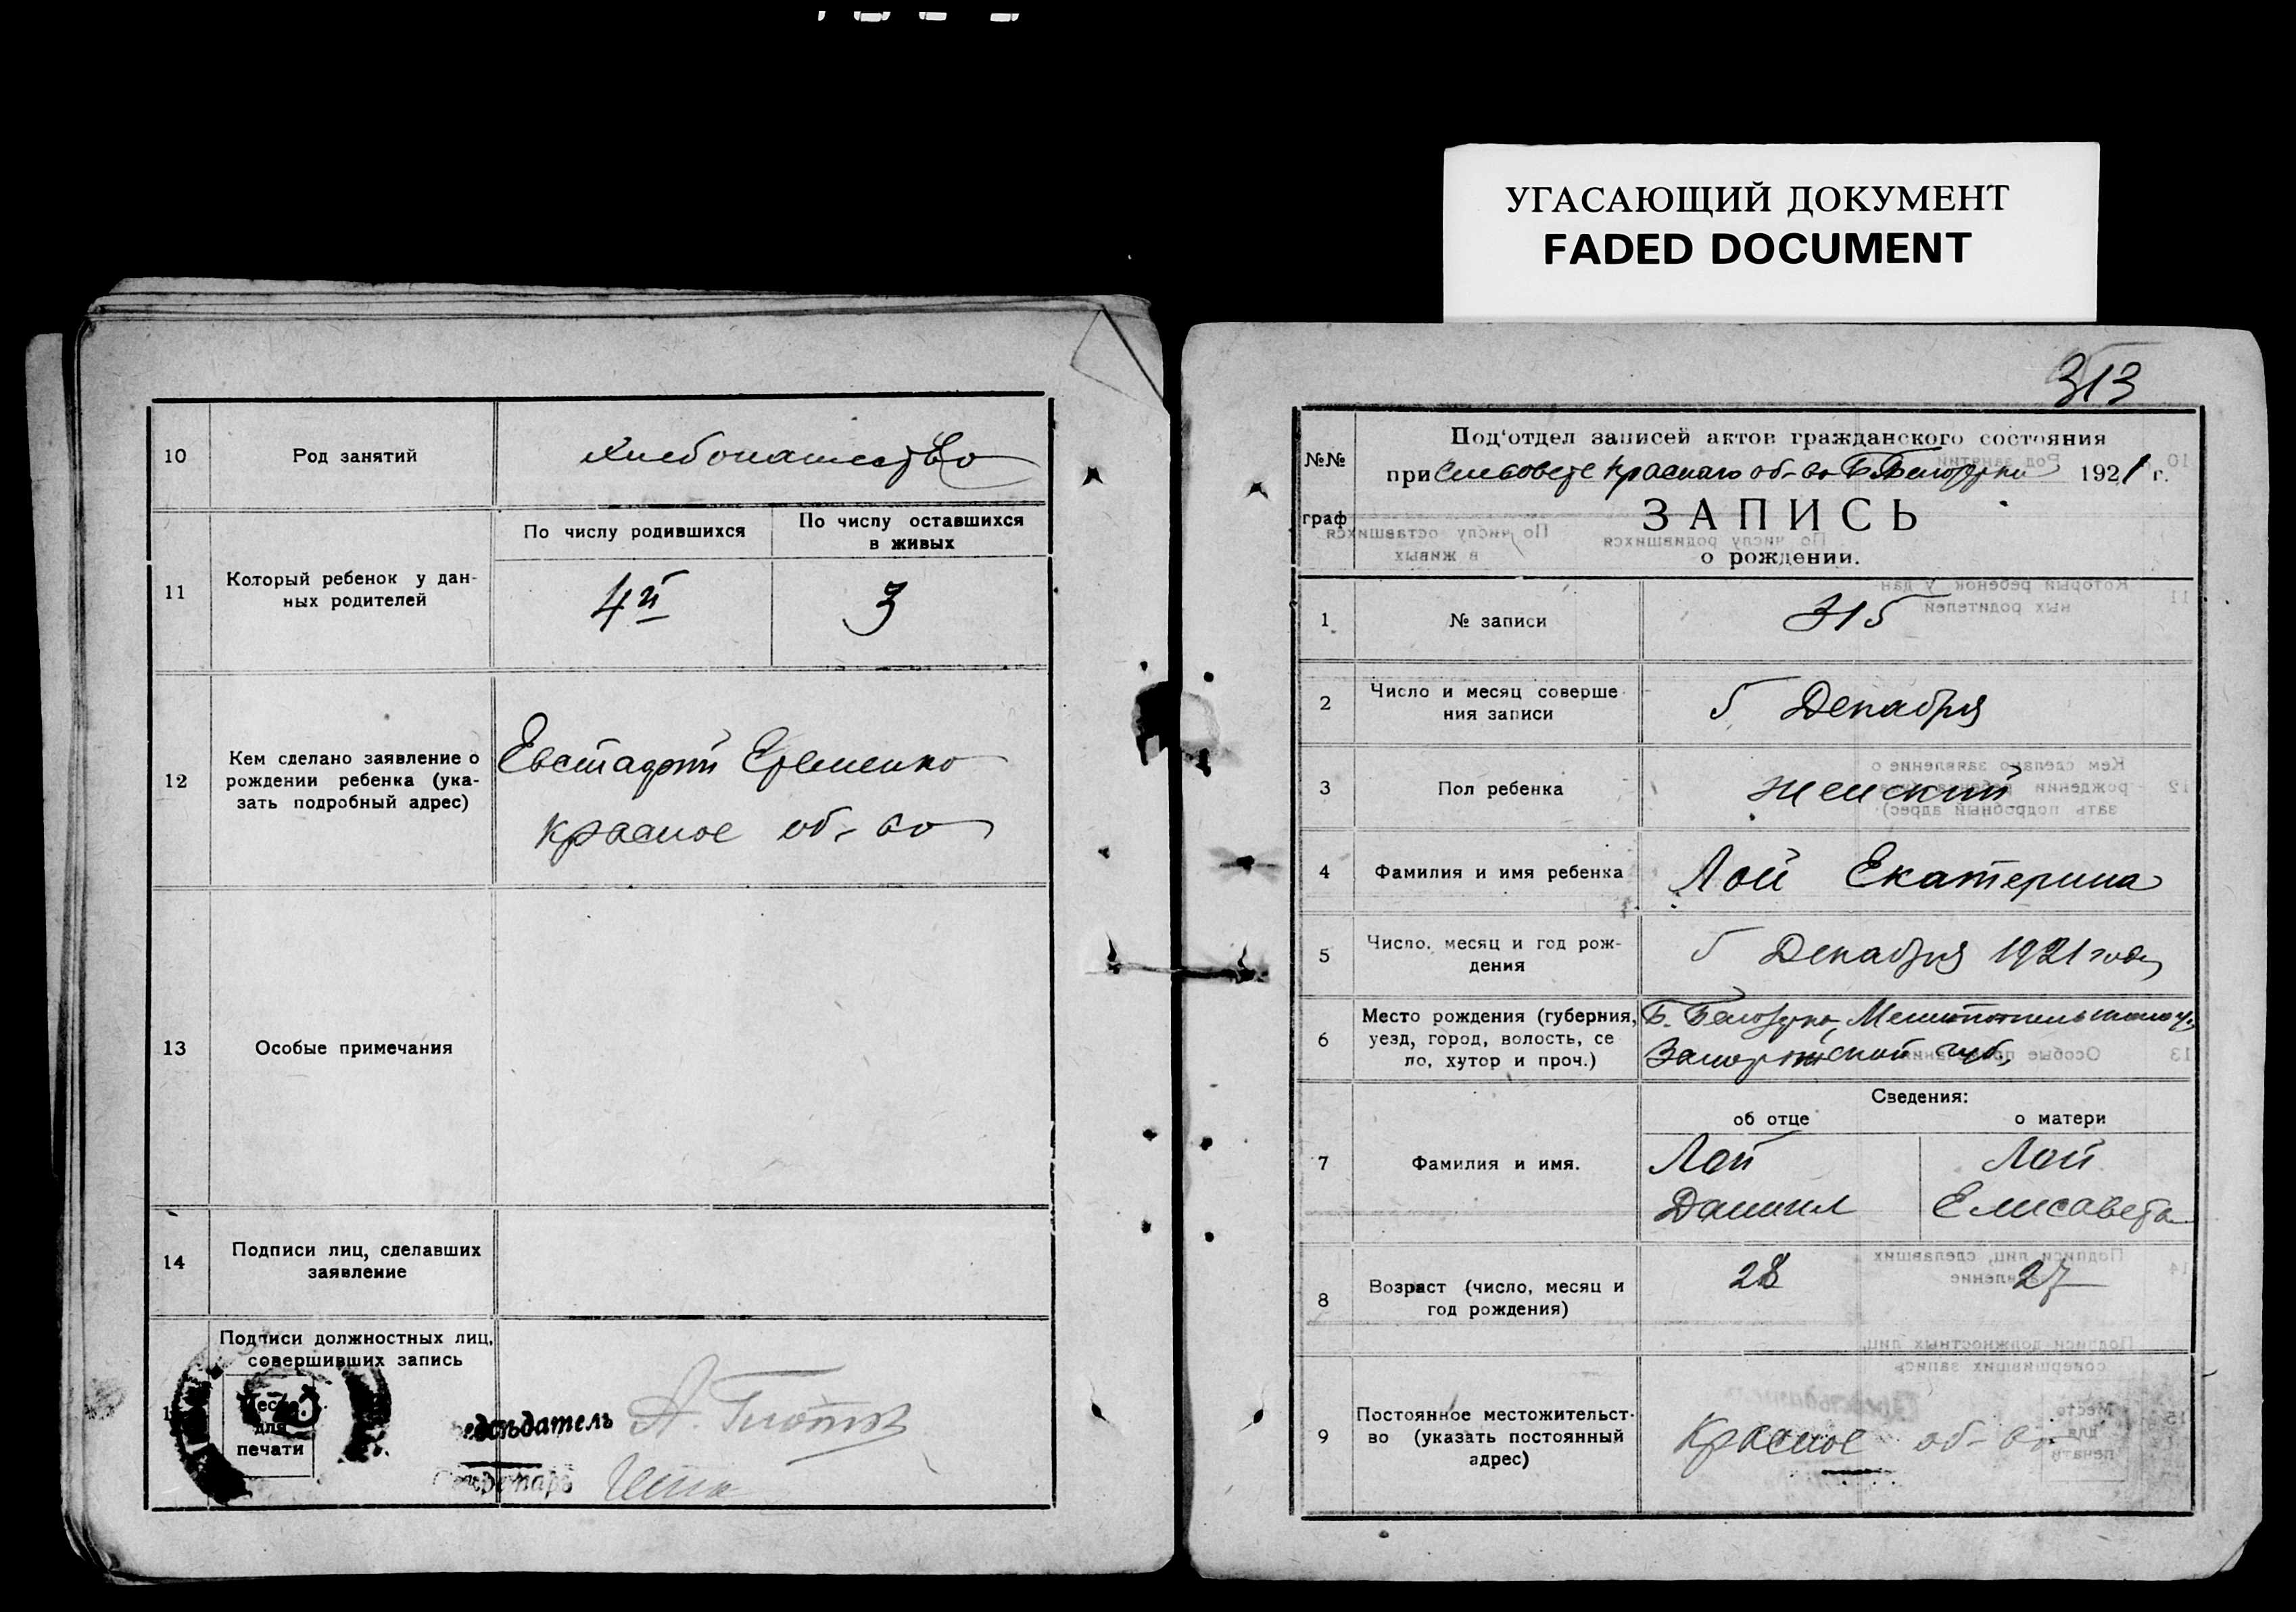 УГАСАЮЩИЙ ДОКУМЕНТ
FADED DOCUMENT
10
Род занятий
Хлебопашество
11
Который ребенок у дан-
ных родителей
По числу родившихся
По числу оставшихся
в живых
4й
3
12
Кем сделано заявление о
рождении ребенка (ука-
зать подробный адрес)
Евстафий Еременко
Красное об-во
13
Особые примечания
14
Подписи лиц, сделавших
заявление
Подписи должностных лиц,
совершивших запись
Место
для
печати
председатель А.
Секретарь
313
№№
граф
Под‘отдел записей актов гражданского состояния
при Сельсовете Краснаго об-ва Б. Белозерки 1921 г.
ЗАПИСЬ
о рождении.
1
№ записи
315
2
Число и месяц соверше
ния записи
5 Декабря
3
Пол ребенка
женский
4
Фамилия и имя ребенка
Лой Екатерина
5
Число, месяц и год рож-
дения
5 Декабря 1921 года
6
Место рождения (губерния,
уезд, город, волость, се
ло, хутор и проч.)
Б. Белозерка, Мелитопольского у.
Запорожской губ.
Сведения:
об отце
о матери
7
Фамилия и имя.
Лой
Даниил
Лой
Елисавета
8
Возраст (число, месяц и
год рождения)
28
27
9
Постоянное местожительст-
во (указать постоянный
адрес)
Красное об-во